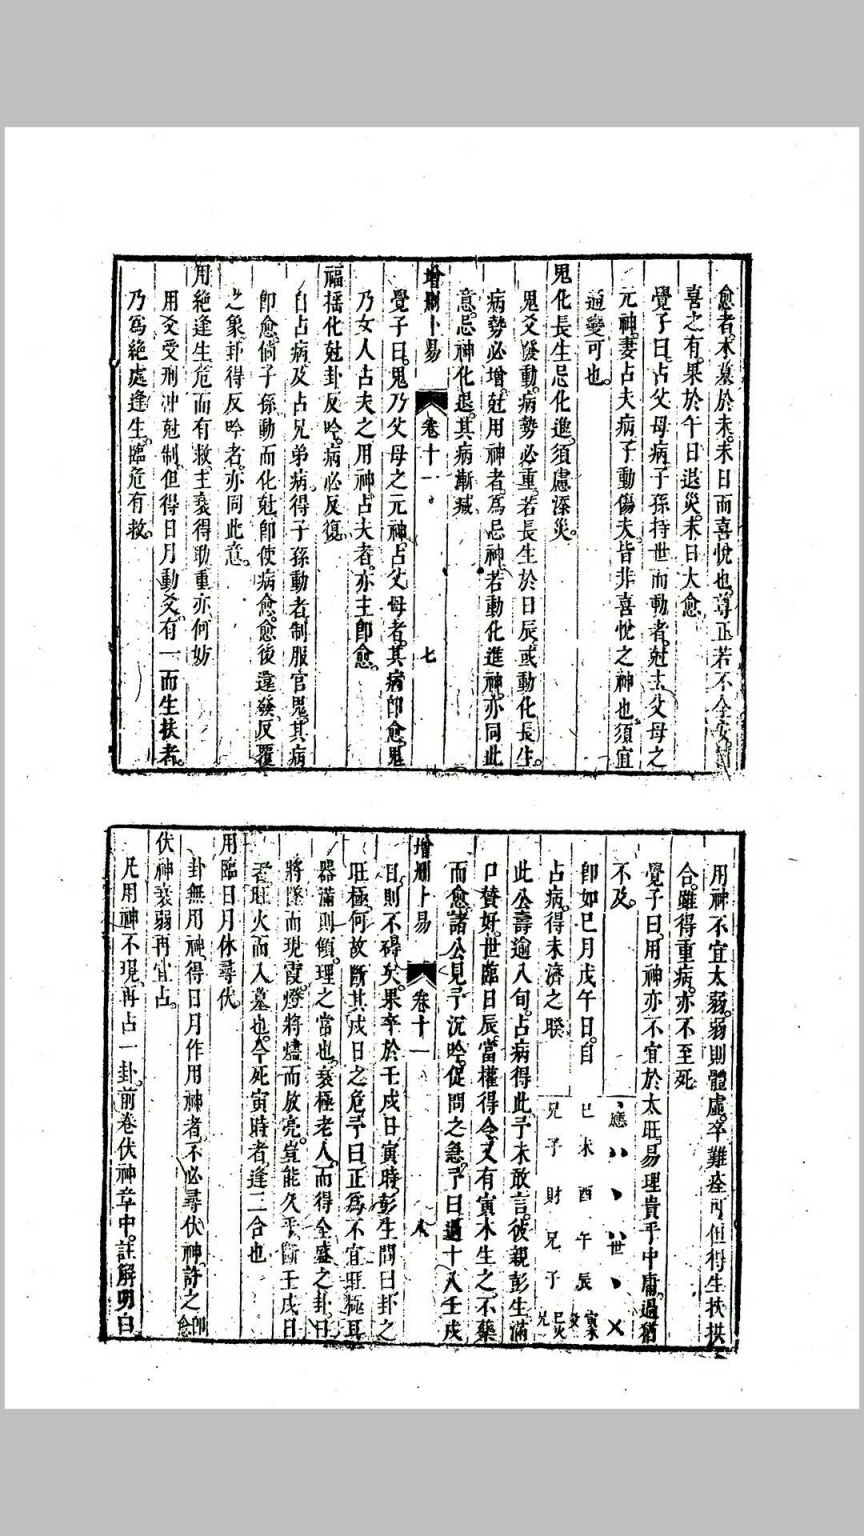 愈者木墓於未未日而喜悅也尊正若不全安
喜之有果於午日退災未日大愈
覺子曰占父母病子孫持世而動者尅去父母之
元神妻占夫病子動傷夫皆非喜悅之神也須宜
通變可也
鬼化長生忌化進須慮添災
鬼爻發動病勢必重若長生於日辰或動化長生
病勢必增尅用神者爲忌神若動化進神亦同此
意忌神化退其病漸減
增刪卜易 卷十一 七
覺子曰鬼乃父母之元神占父母者其病卽愈鬼
乃女人占夫之用神占夫者亦主卽愈
福搖化尅卦反吟病必反復
自占病及占兄弟病得子孫動者制服官鬼其病
卽愈倘子孫動而化尅卽使病愈愈後還發反覆
之象卦得反吟者亦同此意
用絶逢生危而有救主衰得助重亦何妨
用爻受刑冲尅制但得日月動爻有一而生扶者
乃爲絶處逢生臨危有救
用神不宜太弱弱則體虛卒難痊可但得生扶拱
合雖得重病亦不至死
覺子曰用神亦不宜於太旺易理貴乎中庸過猶
不及
卽如巳月戊午日自
占病得未濟之睽
應 世
巳 未 酉 午 辰 寅木
兄 子 財 兄 子 巳火 兄
此公壽逾八旬占病得此予未敢言彼親彭生滿
口贊好世臨日辰當權得令又有寅木生之不藥
而愈諸公見予沉吟促問之急予曰過十八壬戌
增刪卜易 卷十一 八
日則不碍矣果卒於壬戌日寅時彭生問曰卦之
旺極何故斷其戌日之危予曰正爲不宜旺極耳
器滿則傾理之常也衰極老人而得全盛之卦日
將墜而現霞燈將燼而放亮豈能久乎斷壬戌日
者旺火而入墓也今死寅時者逢三合也
用臨日月休尋伏
卦無用神得日月作用神者不必尋伏神許之卽愈
伏神衰弱再宜占
凡用神不現再占一卦前卷伏神章中註解明白